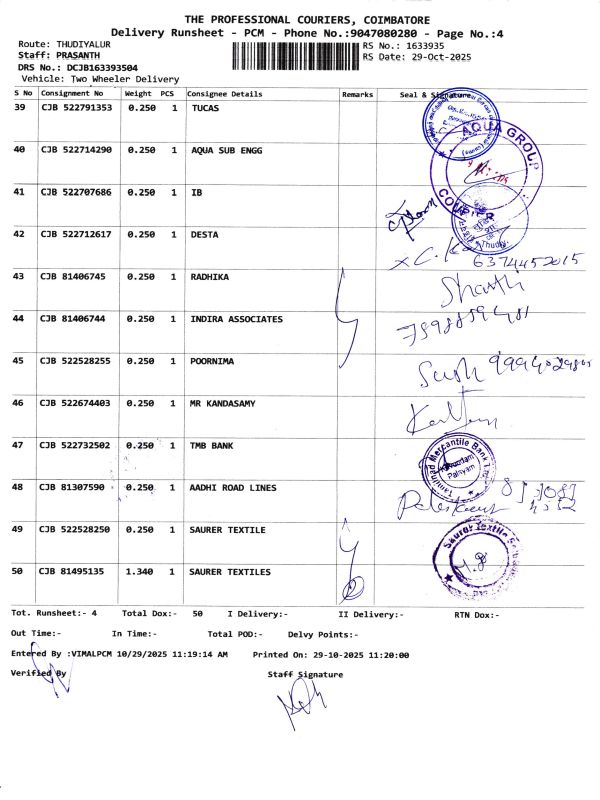 THE PROFESSIONAL COURIERS, COIMBATORE
Delivery Runsheet - PCM - Phone No.:9047080280 - Page No.:4
Route: THUDIYALUR
RS No.: 1633935
Staff: PRASANTH
RS Date: 29-Oct-2025
DRS No.: DCJB163393504
Vehicle: Two Wheeler Delivery
S No Consignment No Weight PCS Consignee Details Remarks Seal & Signature
39 CJB 522791353 0.250 1 TUCAS
40 CJB 522714290 0.250 1 AQUA SUB ENGG
AQUA GROUP
COURIER
41 CJB 522707686 0.250 1 IB
42 CJB 522712617 0.250 1 DESTA
6374452015
43 CJB 81406745 0.250 1 RADHIKA
44 CJB 81406744 0.250 1 INDIRA ASSOCIATES
45 CJB 522528255 0.250 1 POORNIMA
46 CJB 522674403 0.250 1 MR KANDASAMY
47 CJB 522732502 0.250 1 TMB BANK
Tamilnad Mercantile Bank Ltd
48 CJB 81307590 0.250 1 AADHI ROAD LINES
49 CJB 522528250 0.250 1 SAURER TEXTILE
Saurer Textile
50 CJB 81495135 1.340 1 SAURER TEXTILES
Tot. Runsheet:- 4 Total Dox:- 50 I Delivery:- II Delivery:- RTN Dox:-
Out Time:- In Time:- Total POD:- Delvy Points:-
Entered By :VIMALPCM 10/29/2025 11:19:14 AM Printed On: 29-10-2025 11:20:00
Verified By Staff Signature